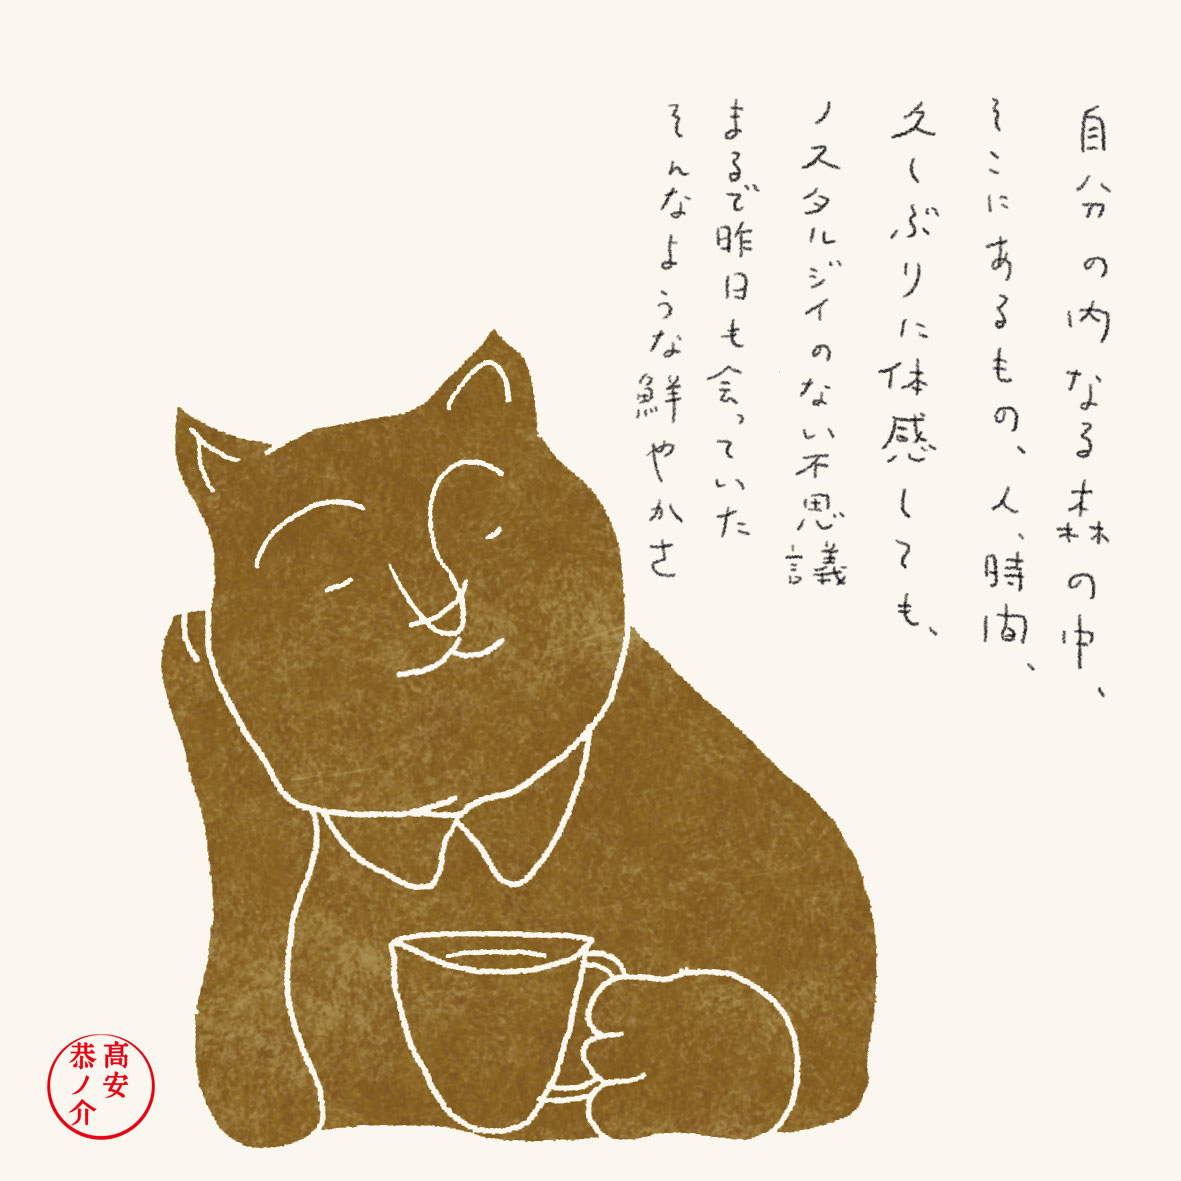 自分の内なる森の中、
そこにあるもの、人、時間、
久しぶりに体感しても、
ノスタルジイのない不思議
まるで昨日も会っていた
そんなような鮮やかさ
髙安
恭ノ介